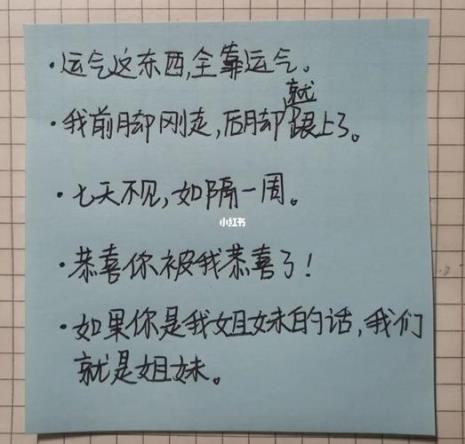 ·运气这东西,全靠运气。
·我前脚刚走,后脚就跟上了。
·七天不见,如隔一周。
小红书
·恭喜你被我恭喜了!
·如果你是我姐妹的话,我们
就是姐妹。